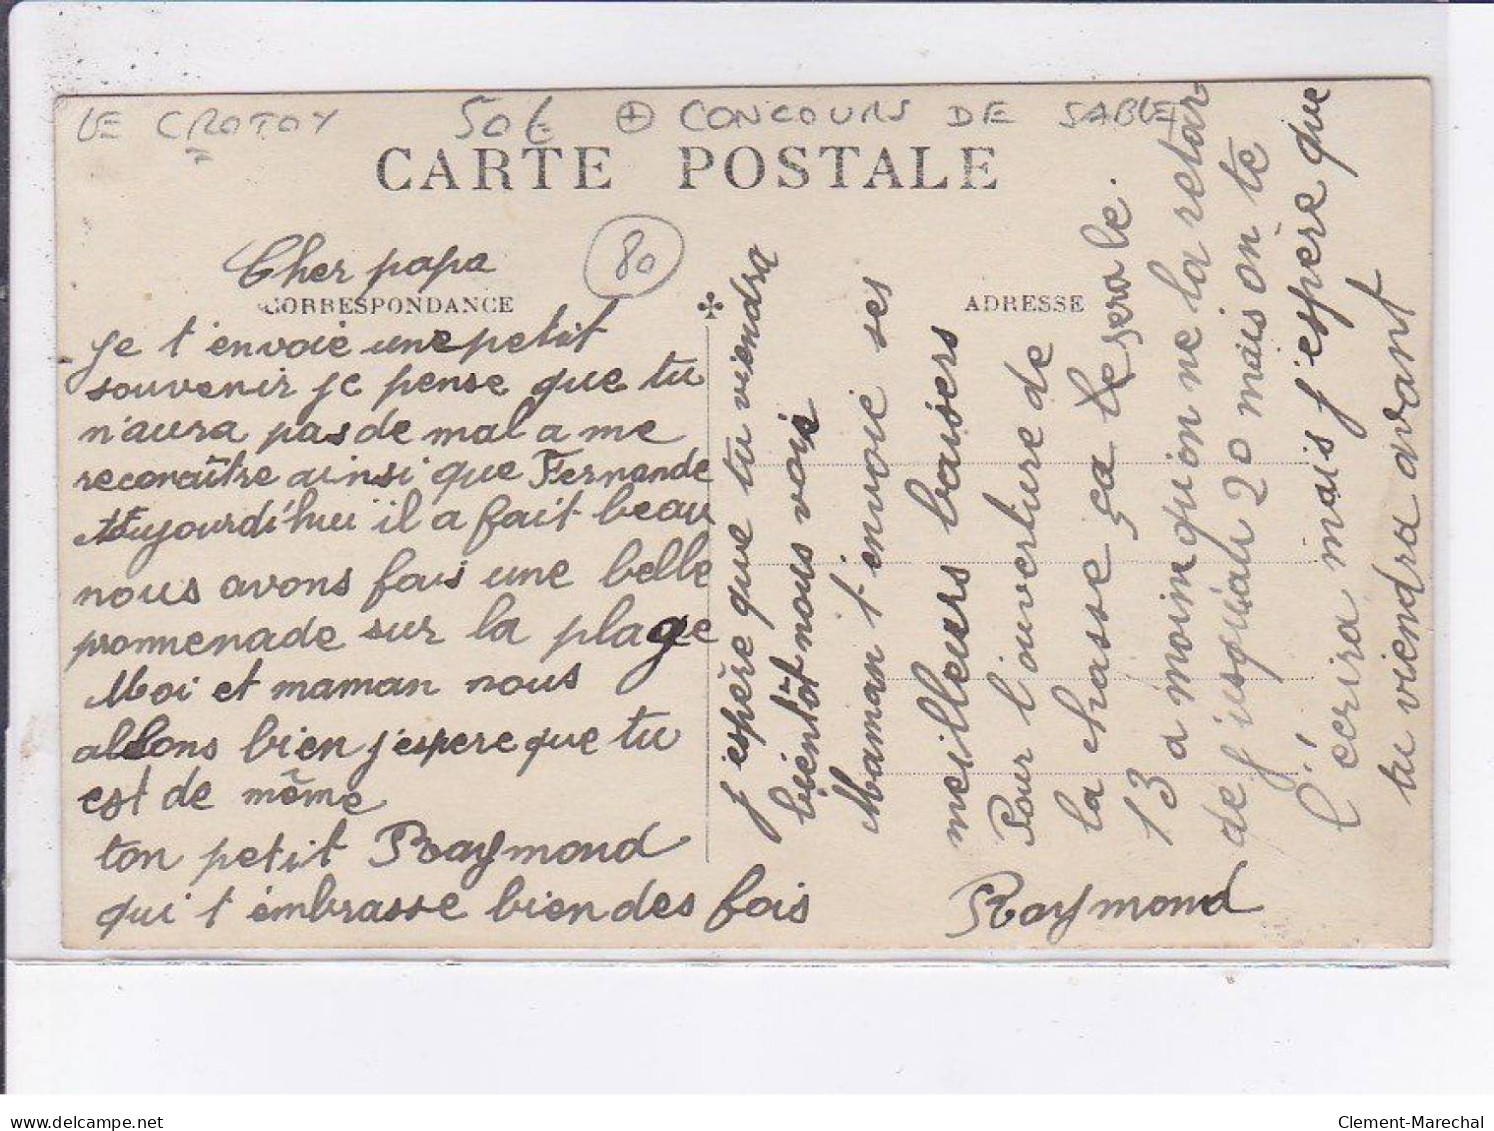 LE CROTOY 50€ ⊕ CONCOURS DE SABLE
CARTE POSTALE
80
Cher papa
CORRESPONDANCE
ADRESSE
Je t'envoie une petit
souvenir je pense que tu
n'aura pas de mal a me
reconaître ainsi que Fernande
Aujourdi'hui il a fait beau
nous avons fais une belle
promenade sur la plage
Moi et maman nous
allons bien j'espere que tu
est de même
ton petit Raymond
qui t'embrasse bien des fois
j'espère que tu viendra
bientôt nous vois
Maman t'envoie ses
meilleurs baisers
Pour l'ouverture de
la chasse ça le sera le
13 a moin qu'on ne la retar
de jusqu'au 20 mais on te
l'écrira mais j'espère que
tu viendra avant
Raymond
Clement-Marechal
delcampe.net